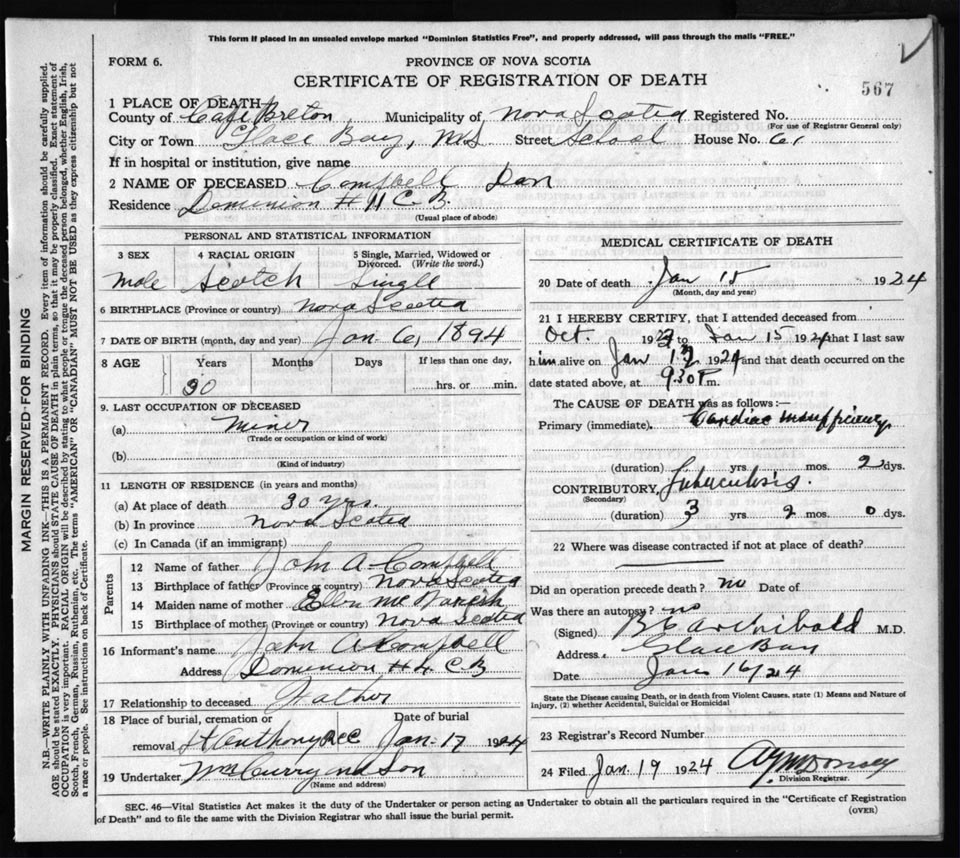 This form if placed in an unsealed envelope marked "Dominion Statistics Free", and properly addressed, will pass through the mails "FREE."
FORM 6.
PROVINCE OF NOVA SCOTIA
CERTIFICATE OF REGISTRATION OF DEATH
567
1 PLACE OF DEATH
County of Cape Breton Municipality of Nova Scotia Registered No.
(For use of Registrar General only)
City or Town Glace Bay, N.S Street School House No. 61
If in hospital or institution, give name
2 NAME OF DECEASED Campbell Dan
Residence Dominion # 11 C.B.
(Usual place of abode)
PERSONAL AND STATISTICAL INFORMATION
3 SEX 4 RACIAL ORIGIN 5 Single, Married, Widowed or Divorced. (Write the word.)
Male Scotch Single
6 BIRTHPLACE (Province or country) Nova Scotia
7 DATE OF BIRTH (month, day and year) Jan. 6, 1894
8 AGE Years Months Days If less than one day,
30 hrs. or min.
9. LAST OCCUPATION OF DECEASED
(a) Miner
(Trade or occupation or kind of work)
(b)
(Kind of industry)
11 LENGTH OF RESIDENCE (in years and months)
(a) At place of death 30 yrs.
(b) In province Nova Scotia
(c) In Canada (if an immigrant)
Parents
12 Name of father John A Campbell
13 Birthplace of father (Province or country) Nova Scotia
14 Maiden name of mother
15 Birthplace of mother (Province or country) Nova Scotia
16 Informant's name John A Campbell
Address Dominion #4 C B
17 Relationship to deceased Father
18 Place of burial, cremation or Date of burial
removal St Anthony Jan. 17 1924
19 Undertaker McCurry and Son
(Name and address)
MEDICAL CERTIFICATE OF DEATH
20 Date of death Jan 15 1924
(Month, day and year)
21 I HEREBY CERTIFY, that I attended deceased from
Oct. 192 to Jan 15 1924 that I last saw
him alive on Jan 1924 and that death occurred on
date stated above, at 9.30 P. m.
The CAUSE OF DEATH was as follows:—
Primary (immediate). Cardiac insufficiency
(duration) yrs. mos. 2 dys.
CONTRIBUTORY Tuberculosis.
(Secondary)
(duration) 3 yrs 2 mos. 0 dys.
22 Where was disease contracted if not at place of death?
Did an operation precede death? no Date of
Was there an autopsy? no
(Signed) Archibald M.D.
Address. Glace Bay
Date Jan 16/24
State the Disease causing Death, or in death from Violent Causes, state (1) Means and Nature of
Injury, (2) whether Accidental, Suicidal or Homicidal
23 Registrar's Record Number
24 Filed Jan. 19 1924
Division Registrar.
SEC. 46—Vital Statistics Act makes it the duty of the Undertaker or person acting as Undertaker to obtain all the particulars required in the "Certificate of Registration
of Death" and to file the same with the Division Registrar who shall issue the burial permit.
(OVER)
MARGIN RESERVED FOR BINDING
N.B.—WRITE PLAINLY WITH UNFADING INK—THIS IS A PERMANENT RECORD. Every item of information should be carefully supplied.
AGE should be stated EXACTLY. PHYSICIANS should STATE CAUSE OF DEATH in plain terms, so that it may be properly classified. Exact statement of
OCCUPATION is very important. RACIAL ORIGIN will be described by stating to what people or tongue the deceased person belonged, whether English, Irish,
Scotch, French, German, Russian, Ruthenian, etc. The terms "AMERICAN" OR "CANADIAN" MUST NOT BE USED as they express citizenship but not
a race or people. See instructions on back of Certificate.